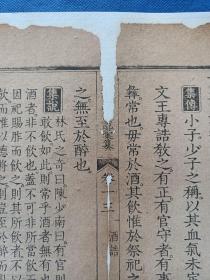 集傳
小子少子之稱以其血氣未定
文王專誥教之有正有官守者有
彝常也毋常於酒其飲惟於祭祀
卷十三 酒誥
之無至於醉也
集說
林氏之奇曰陳少南曰有官
敢飲如此則常於酒者無有
酒者非不飲也不可非所當飲
因祀賜胙而飲之則其所飲者不